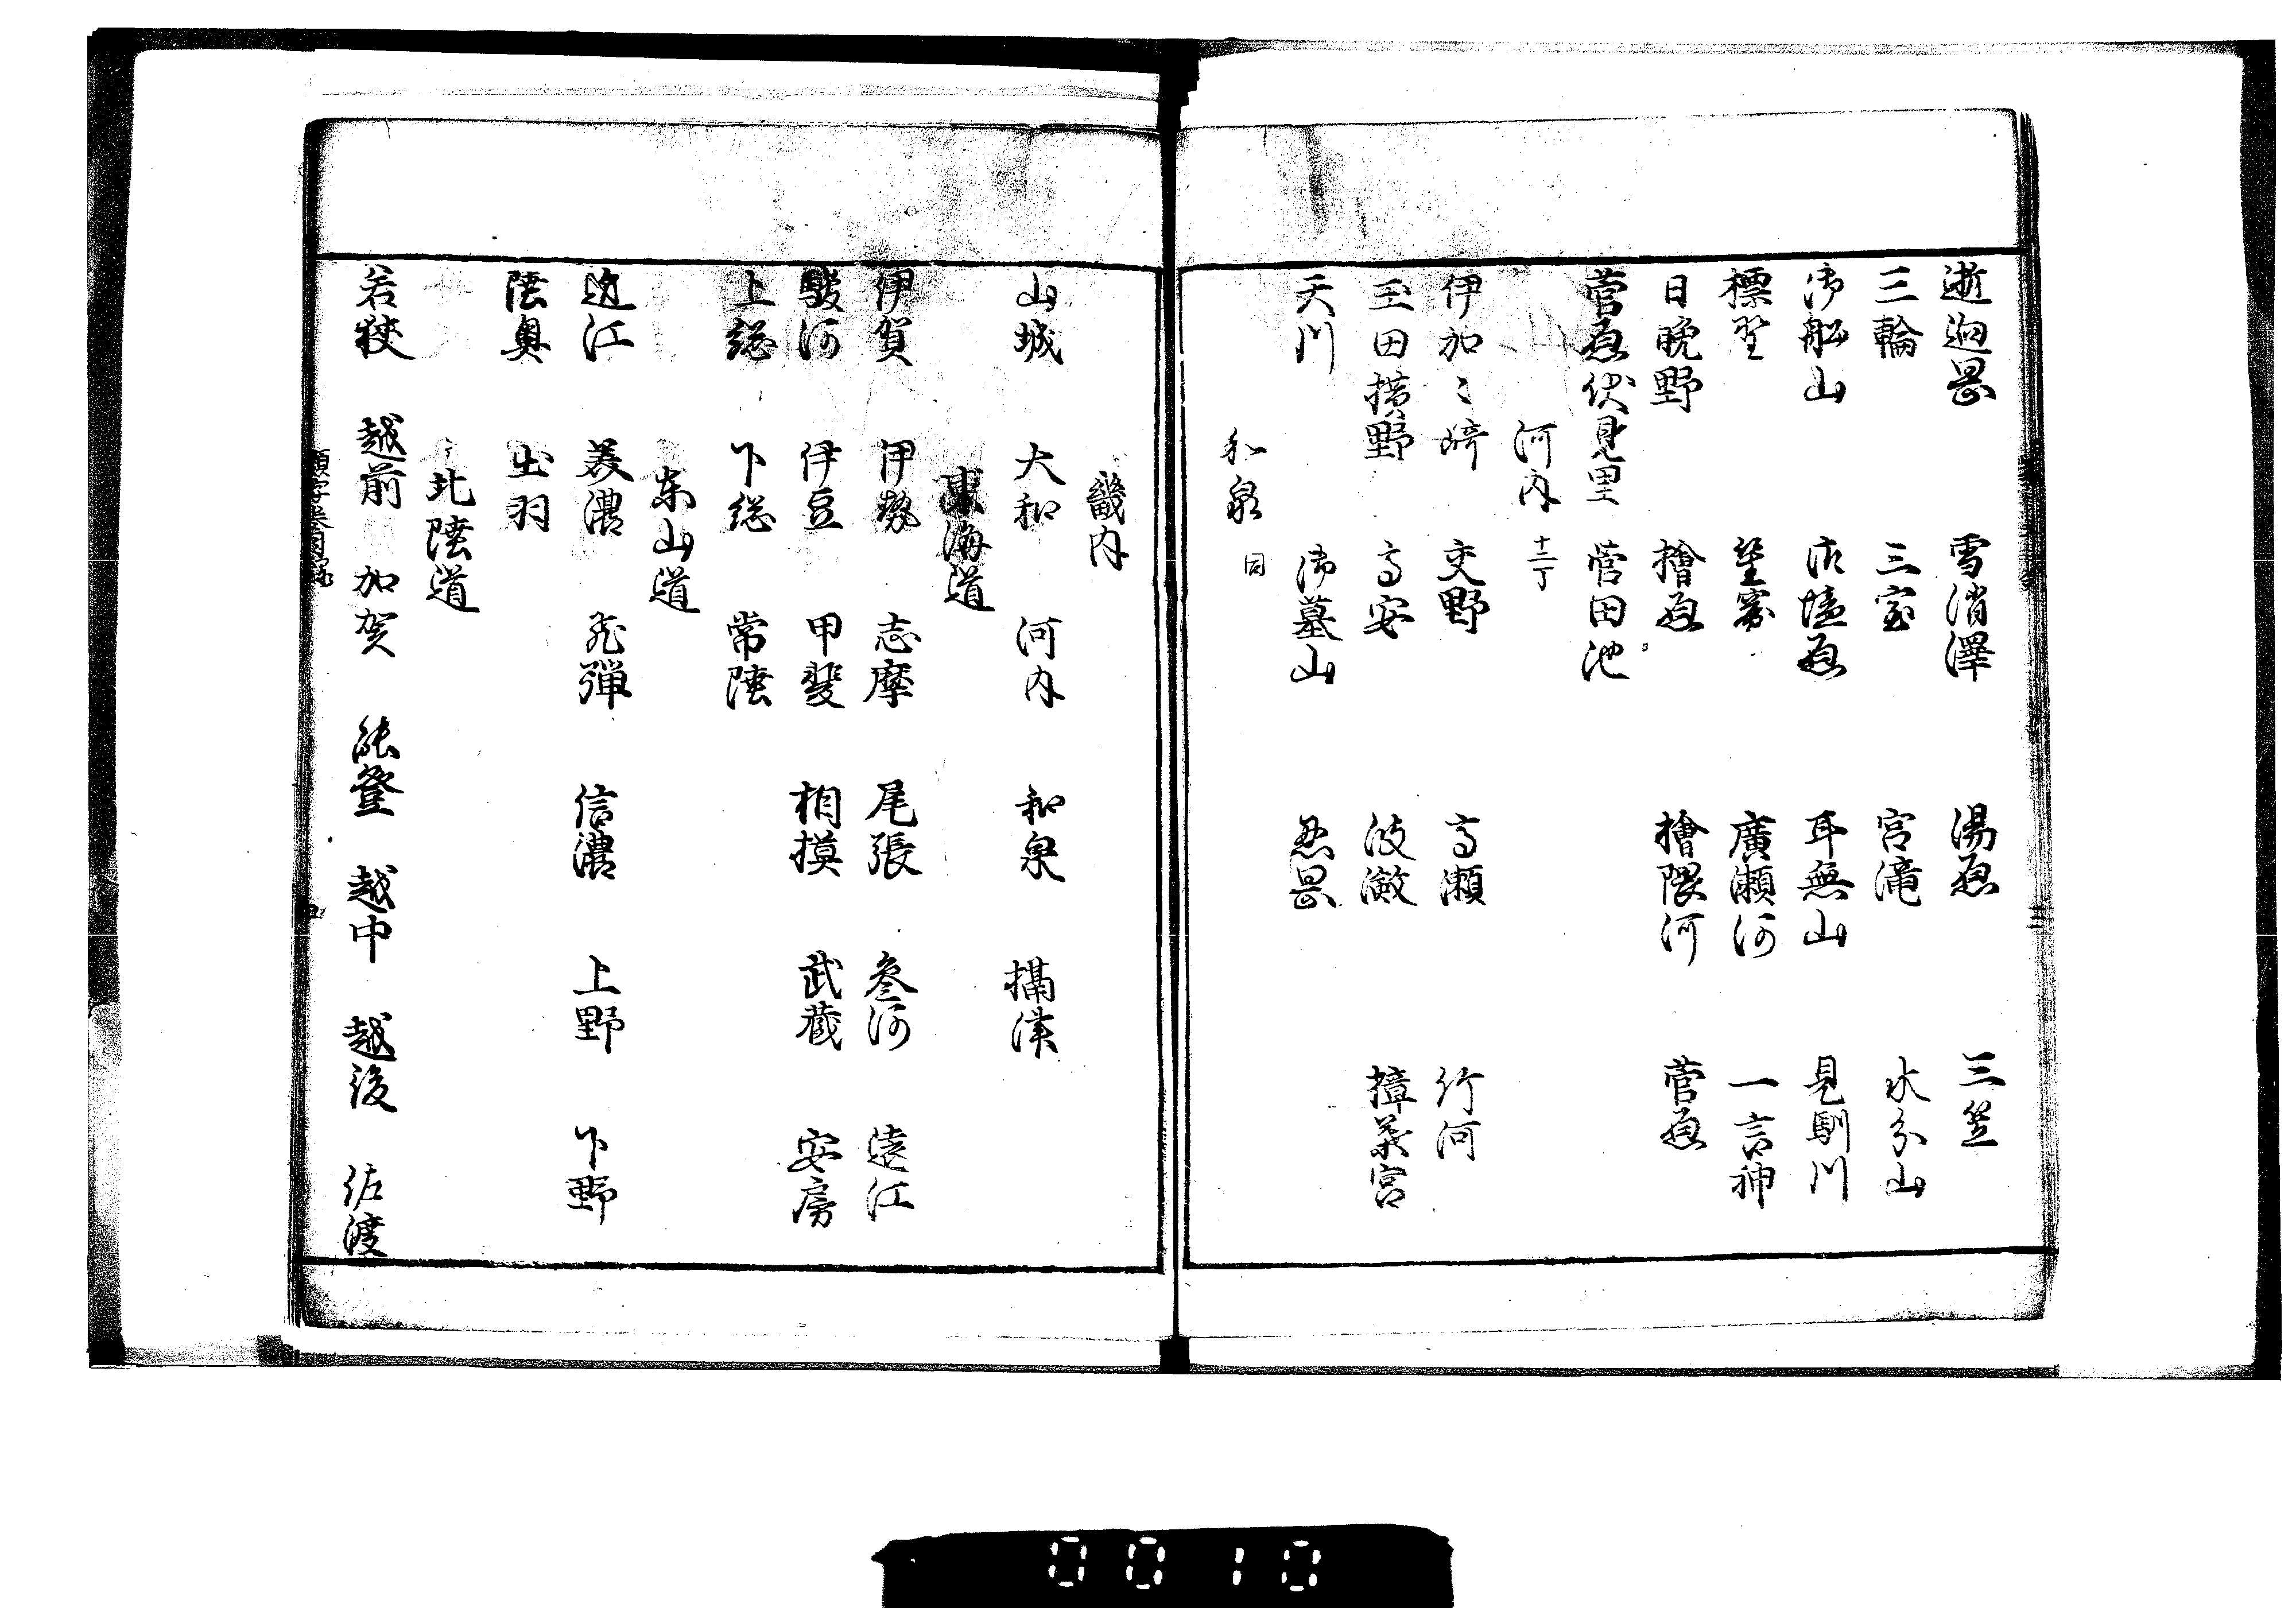 逝廻岡 雪消澤 湯原 三笠
三輪 三室 宮滝 水分山
御船山 御垣原 耳無山 見馴川
標野 廣瀬河 一言神
日晩野 檜原 檜隈河 菅原
菅原伏見里 菅田池
河内 十二丁
伊加〻崎 交野 高瀬 行河
玉田横野 高安 波瀲 樟葉宮
天川 御墓山 忍岡
和泉 同
畿内
山城 大和 河内 和泉 攝津
東海道
伊賀 伊勢 志摩 尾張 叄河 遠江
駿河 伊豆 甲斐 相摸 武蔵 安房
上総 下総 常陸
东山道
近江 美濃 飛弾 信濃 上野 下野
陸奥 出羽
北陸道
若狭 越前 加賀 能登 越中 越後 佐渡
類字 目録
0010